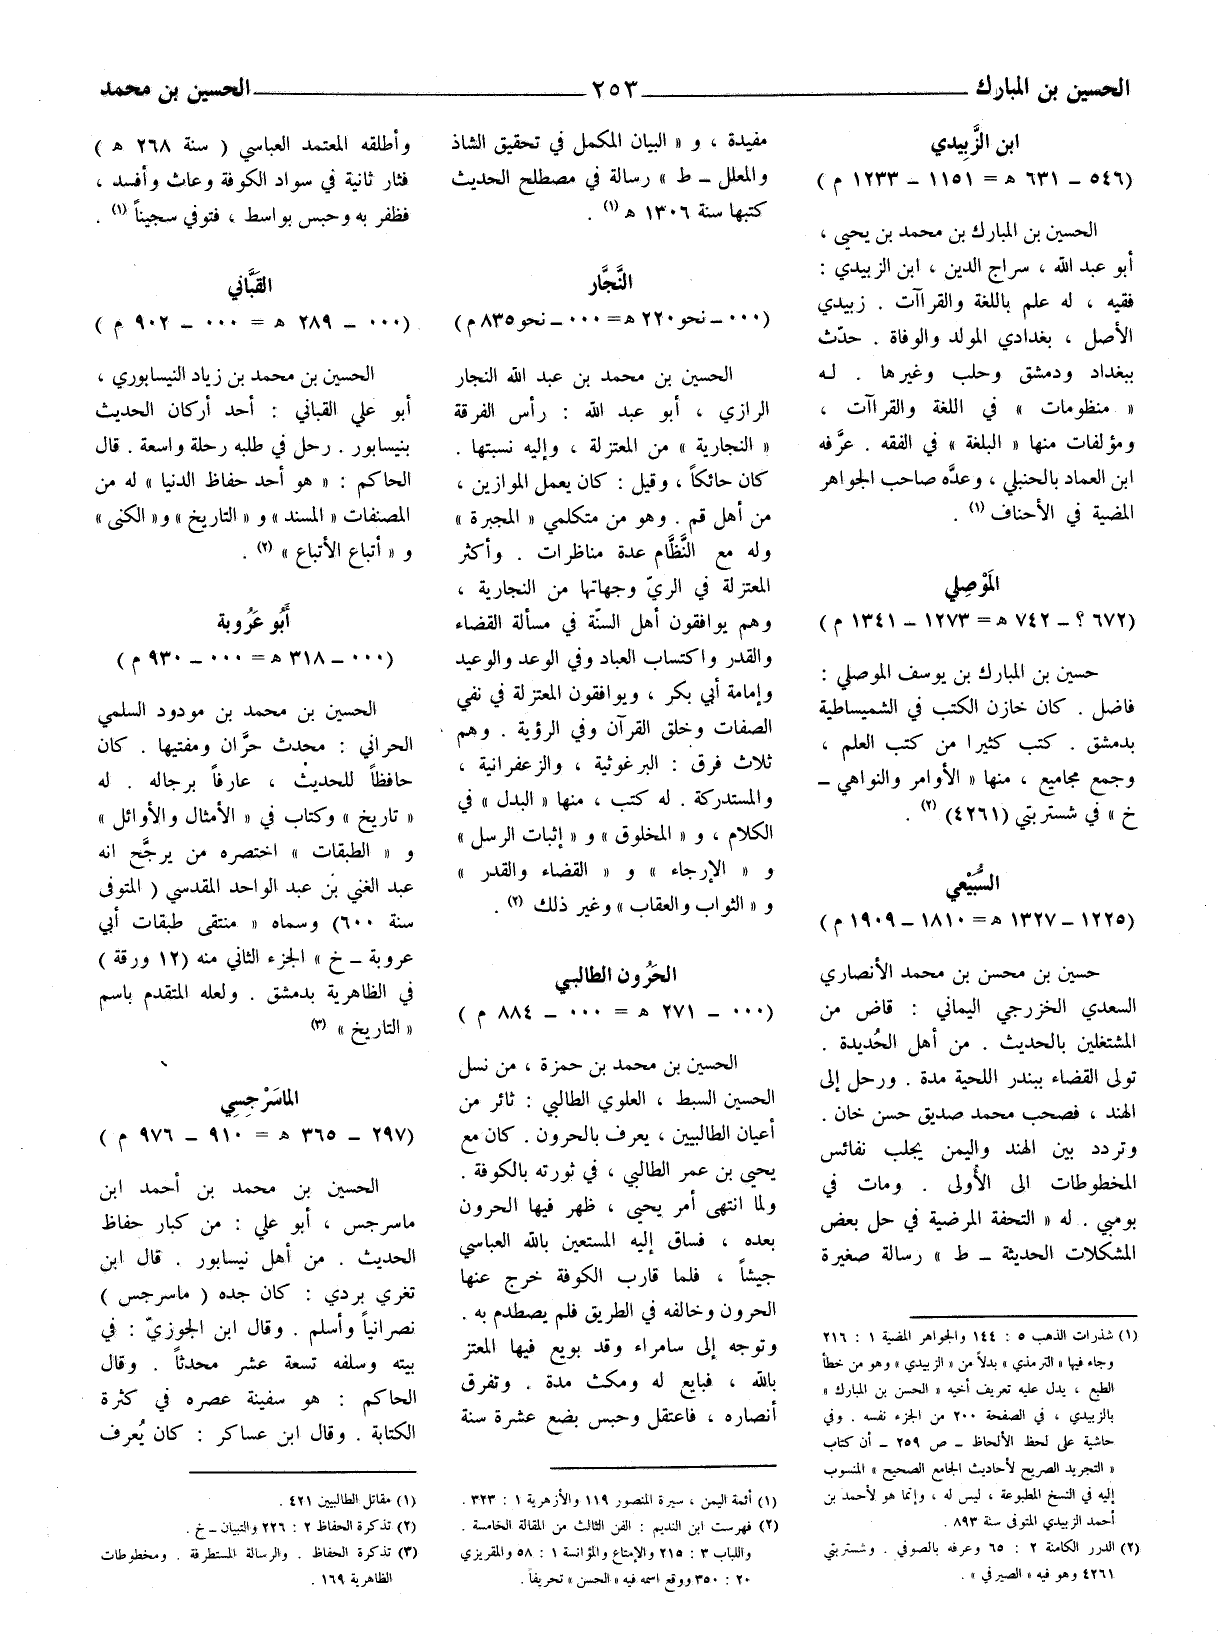 الحسين بن المبارك ــــــ ٢٥٣ ــــــ الحسين بن محمد
ابن الزَّبِيدي
(٥٤٦ ــ ٦٣١ ه‍ = ١١٥١ ــ ١٢٣٣ م )
الحسين بن المبارك بن محمد بن يحيى ،
أبو عبد الله ، سراج الدين ، ابن الزبيدي :
فقيه ، له علم باللغة والقراآت . زبيدي
الأصل ، بغدادي المولد والوفاة . حدّث
ببغداد ودمشق وحلب وغيرها . لـه
« منظومات » في اللغة والقراآت ،
ومؤلفات منها « البلغة » في الفقه . عرَّفه
ابن العماد بالحنبلي ، وعدَّه صاحب الجواهر
المضية في الأحناف (١) .
المَوْصِلي
(٦٧٢ ؟ ــ ٧٤٢ ه‍ = ١٢٧٣ ــ ١٣٤١ م )
حسين بن المبارك بن يوسف الموصلي :
فاضل . كان خازن الكتب في الشميساطية
بدمشق . كتب كثيرا من كتب العلم ،
وجمع مجاميع ، منها « الأوامر والنواهي ــ
خ » في شستربتي (٤٢٦١) (٢) .
السُّبَيْعي
(١٢٢٥ ــ ١٣٢٧ ه‍ = ١٨١٠ ــ ١٩٠٩ م )
حسين بن محسن بن محمد الأنصاري
السعدي الخزرجي اليماني : قاض من
المشتغلين بالحديث . من أهل الحُديدة .
تولى القضاء ببندر اللحية مدة . ورحل إلى
الهند ، فصحب محمد صديق حسن خان .
وتردد بين الهند واليمن يجلب نفائس
المخطوطات الى الأُولى . ومات في
بومبي . له « التحفة المرضية في حل بعض
المشكلات الحديثة ــ ط » رسالة صغيرة
(١) شذرات الذهب ٥ : ١٤٤ والجواهر المضية ١ : ٢١٦
وجاء فيها « الترمذي » بدلاً من « الزبيدي » وهو من خطأ
الطبع ، يدل عليه تعريف أخيه « الحسن بن المبارك »
بالزبيدي ، في الصفحة ٢٠٠ من الجزء نفسه . وفي
حاشية على لحظ الألحاظ ــ ص ٢٥٩ ــ أن كتاب
« التجريد الصريح لأحاديث الجامع الصحيح » المنسوب
إليه في النسخ المطبوعة ، ليس له ، وإنما هو لأحمد بن
أحمد الزبيدي المتوفى سنة ٨٩٣ .
(٢) الدرر الكامنة ٢ : ٦٥ وعرفه بالصوفي . وشستربتي
٤٢٦١ وهو فيه « الصيرفي » .
مفيدة ، و « البيان المكمل في تحقيق الشاذ
والمعلل ــ ط » رسالة في مصطلح الحديث
كتبها سنة ١٣٠٦ ه‍ (١) .
النَّجَّار
(٠٠٠ ــ نحو ٢٢٠ ه‍ = ٠٠٠ ــ نحو ٨٣٥ م )
الحسين بن محمد بن عبد الله النجار
الرازي ، أبو عبد الله : رأس الفرقة
« النجارية » من المعتزلة ، وإليه نسبتها .
كان حائكاً ، وقيل : كان يعمل الموازين ،
من أهل قم . وهو من متكلمي « المجبرة »
وله مع النَّظَّام عدة مناظرات . وأكثر
المعتزلة في الريّ وجهاتها من النجارية ،
وهم يوافقون أهل السنّة في مسألة القضاء
والقدر واكتساب العباد وفي الوعد والوعيد
وإمامة أبي بكر ، ويوافقون المعتزلة في نفي
الصفات وخلق القرآن وفي الرؤية . وهم
ثلاث فرق : البرغوثية ، والزعفرانية ،
والمستدركة . له كتب ، منها « البدل » في
الكلام ، و « المخلوق » و « إثبات الرسل »
و « الإرجاء » و « القضاء والقدر »
و « الثواب والعقاب » وغير ذلك (٢) .
الحَرُون الطالبي
(٠٠٠ ــ ٢٧١ ه‍ = ٠٠٠ ــ ٨٨٤ م )
الحسين بن محمد بن حمزة ، من نسل
الحسين السبط ، العلوي الطالبي : ثائر من
أعيان الطالبيين ، يعرف بالحرون . كان مع
يحيى بن عمر الطالبي ، في ثورته بالكوفة .
ولما انتهى أمر يحيى ، ظهر فيها الحرون
بعده ، فساق إليه المستعين بالله العباسي
جيشاً ، فلما قارب الكوفة خرج عنها
الحرون وخالفه في الطريق فلم يصطدم به .
وتوجه إلى سامراء وقد بويع فيها المعتز
بالله ، فبايع له ومكث مدة . وتفرق
أنصاره ، فاعتقل وحبس بضع عشرة سنة
(١) أئمة اليمن ، سيرة المنصور ١١٩ والأزهرية ١ : ٣٢٣ .
(٢) فهرست ابن النديم : الفن الثالث من المقالة الخامسة .
واللباب ٣ : ٢١٥ والإمتاع والمؤانسة ١ : ٥٨ والمقريزي
٢ : ٣٥٠ ووقع اسمه فيه « الحسن » تحريفاً .
وأطلقه المعتمد العباسي ( سنة ٢٦٨ ه‍ )
فثار ثانية في سواد الكوفة وعاث وأفسد ،
فظفر به وحبس بواسط ، فتوفي سجيناً (١) .
القَبَّاني
(٠٠٠ ــ ٢٨٩ ه‍ = ٠٠٠ ــ ٩٠٢ م )
الحسين بن محمد بن زياد النيسابوري ،
أبو علي القباني : أحد أركان الحديث
بنيسابور . رحل في طلبه رحلة واسعة . قال
الحاكم : « هو أحد حفاظ الدنيا » له من
المصنفات « المسند » و « التاريخ » و« الكنى »
و « أتباع الأتباع » (٢) .
أَبُو عَرُوبة
(٠٠٠ ــ ٣١٨ ه‍ = ٠٠٠ ــ ٩٣٠ م )
الحسين بن محمد بن مودود السلمي
الحراني : محدث حرَّان ومفتيها . كان
حافظاً للحديث ، عارفاً برجاله . له
« تاريخ » وكتاب في « الأمثال والأوائل »
و « الطبقات » اختصره من يرجَّح انه
عبد الغني بن عبد الواحد المقدسي ( المتوفى
سنة ٦٠٠) وسماه « منتقى طبقات أبي
عروبة ــ خ » الجزء الثاني منه (١٢ ورقة )
في الظاهرية بدمشق . ولعله المتقدم باسم
« التاريخ » (٣)
الماسَرْجِسِي
(٢٩٧ ــ ٣٦٥ ه‍ = ٩١٠ ــ ٩٧٦ م )
الحسين بن محمد بن أحمد ابن
ماسرجس ، أبو علي : من كبار حفاظ
الحديث . من أهل نيسابور . قال ابن
تغري بردي : كان جده ( ماسرجس )
نصرانياً وأسلم . وقال ابن الجوزيّ : في
بيته وسلفه تسعة عشر محدثاً . وقال
الحاكم : هو سفينة عصره في كثرة
الكتابة . وقال ابن عساكر : كان يُعرف
(١) مقاتل الطالبيين ٤٢١ .
(٢) تذكرة الحفاظ ٢ : ٢٢٦ والتبيان ــ خ .
(٣) تذكرة الحفاظ . والرسالة المستطرفة . ومخطوطات
الظاهرية ١٦٩ .